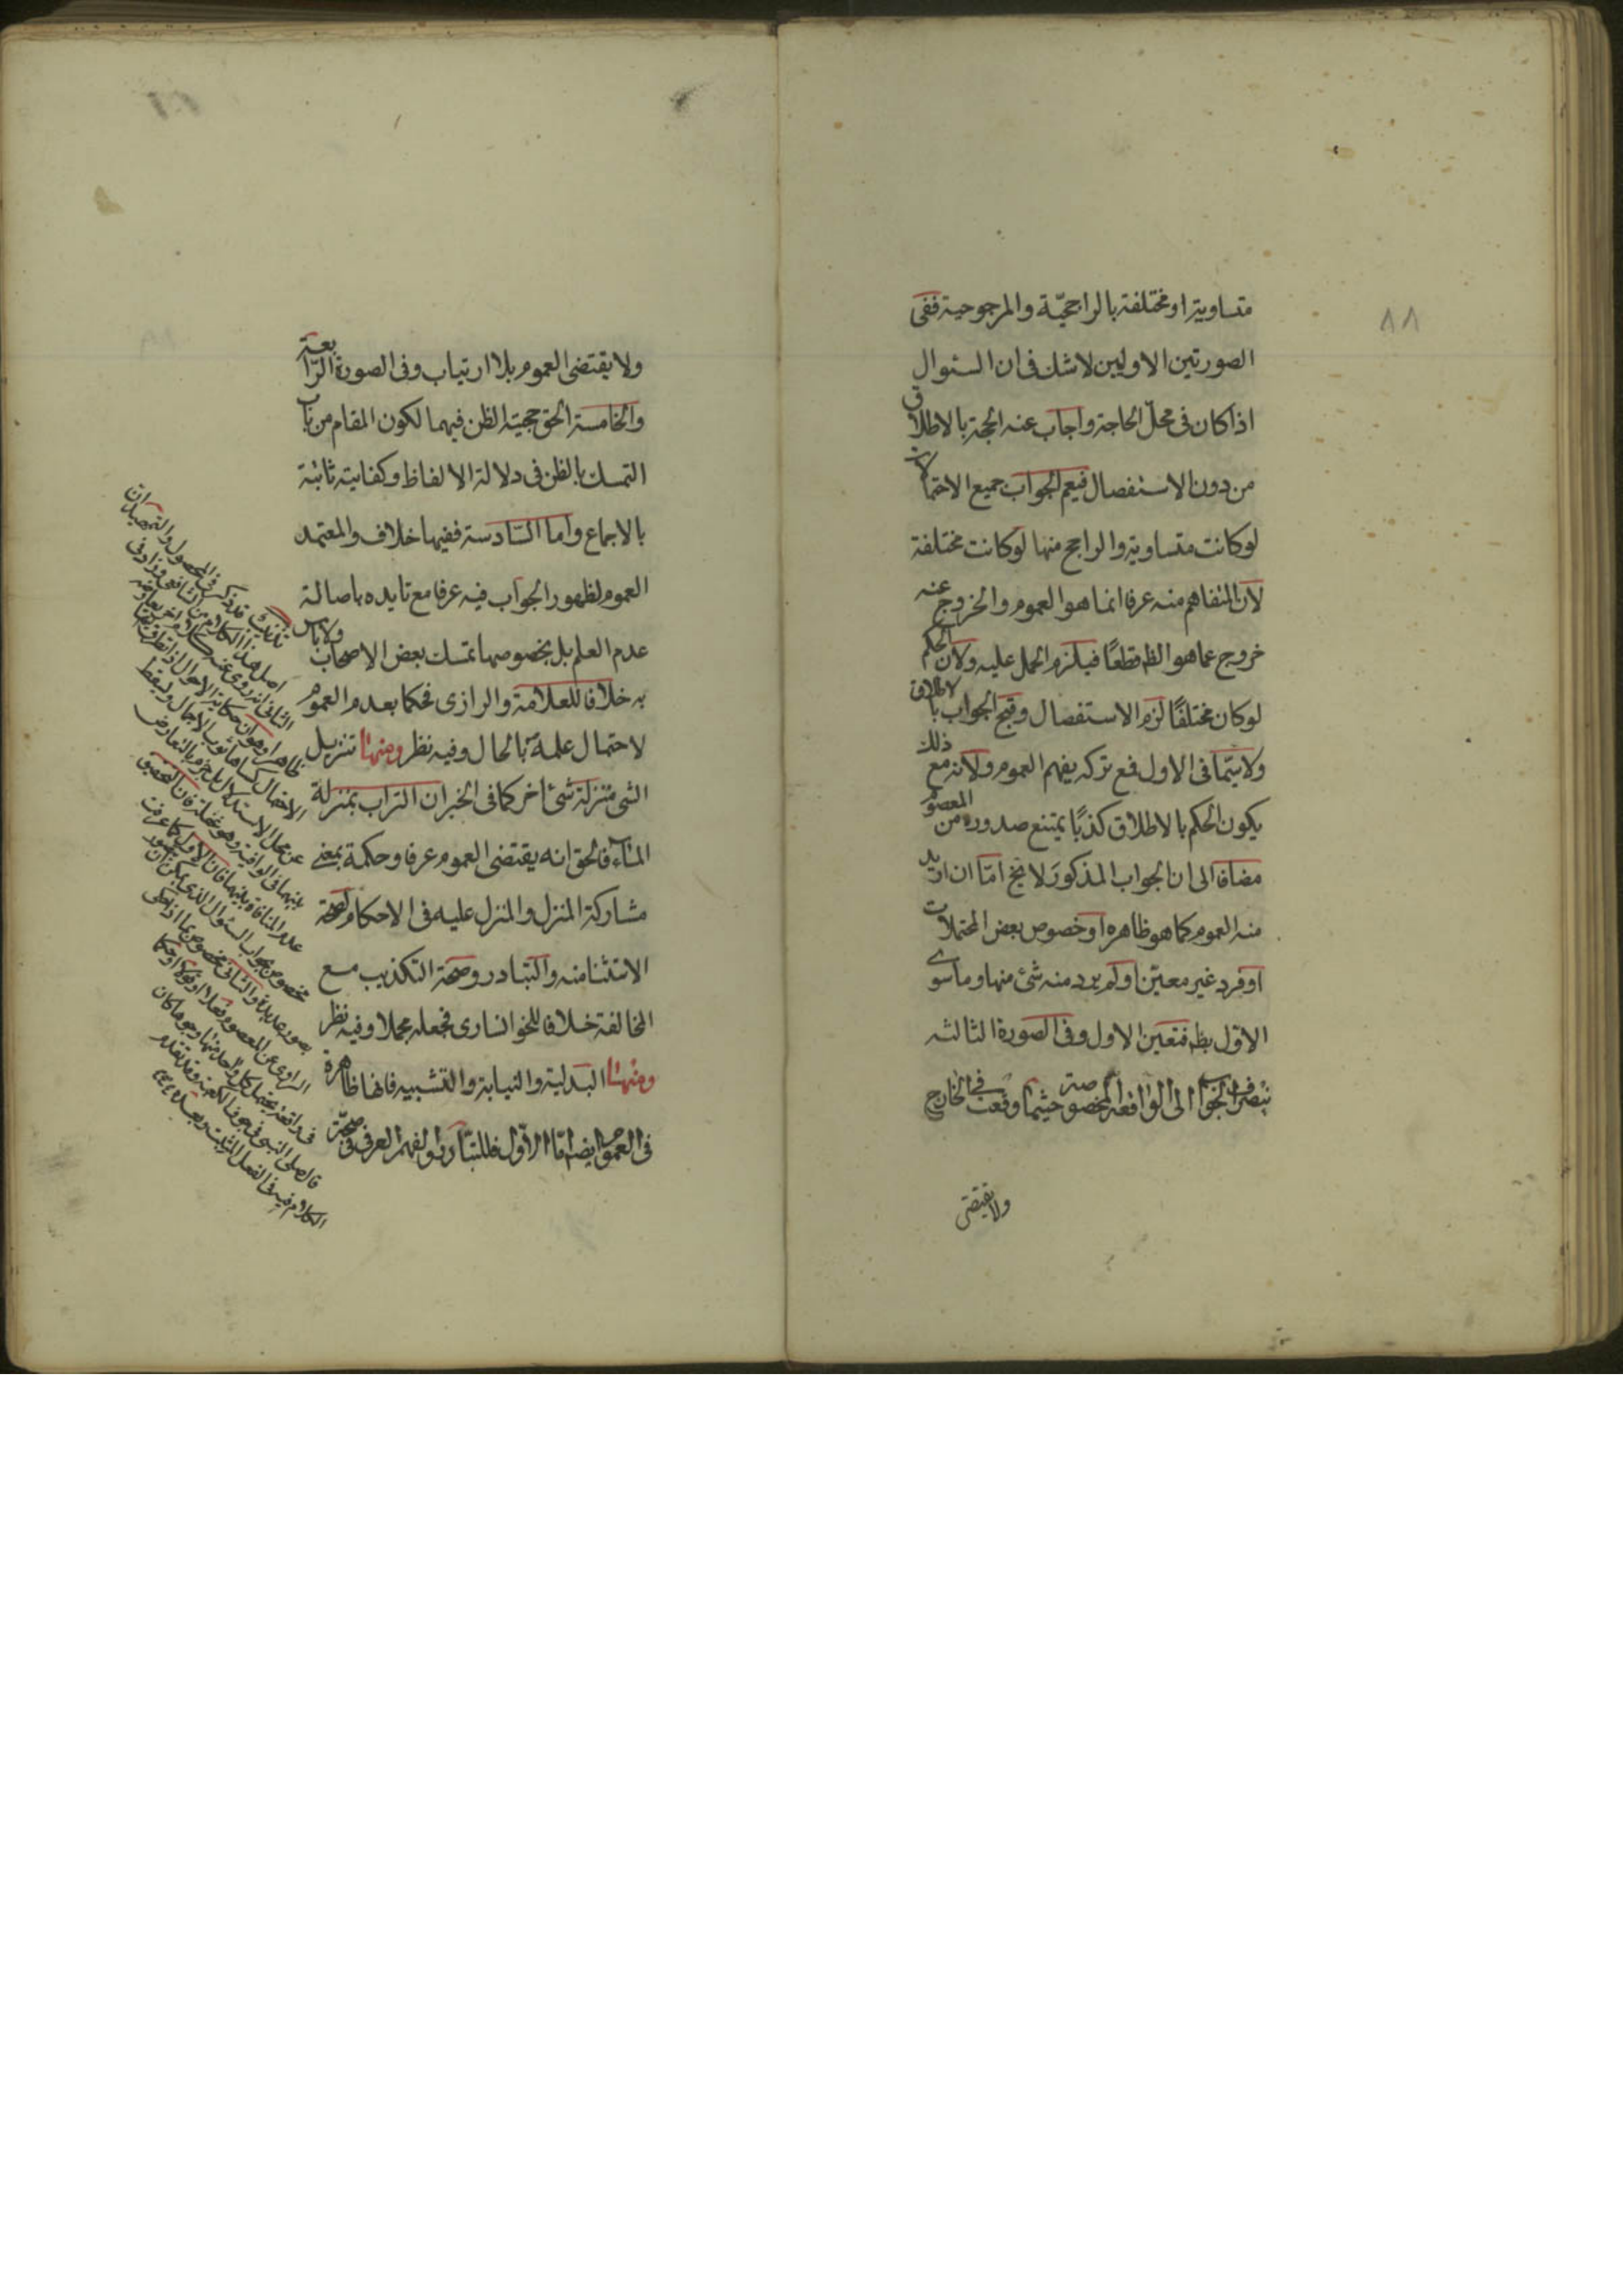 ٨٨
متساوية او مختلفة بالراجحيّة والمرجوحية ففى
الصورتين الاوليين لا شك فى ان السئوال
اذا كان فى محلّ الحاجة واجاب عنه الحجة بالاطلاق
من دون الاستفصال فيعم الجواب جميع الاحتمالات
لو كانت متساوية والراجح منها لو كانت مختلفة
لان المتفاهم منه عرفا انما هو العموم والخروج عنه
خروج عما هو الظ قطعًا فيلزم الحمل عليه ولان الحكم
لو كان مختلفًا لزم الاستفصال وقبح الجواب بالاطلاق
ولا سيّما فى الاول فمع تركه يفهم العموم ولانه مع ذلك
يكون الحكم بالاطلاق كذبًا يمتنع صدوره من المعصوم
مضافا الى ان الجواب المذكور لا يخ امّا ان اريد
منه العموم كما هو ظاهره او خصوص بعض المحتملات
او فرد غير معيّن او لم يرد منه شئ منها وما سوى
الاوّل بط فتعين الاول وفى الصورة الثالثه
ينصرف الجواب الى الواقعة المخصوصة حيثما وقعت فى الخارج
ولا يقتضى
ولا يقتضى العموم بلا ارتياب وفى الصورة الرّابعة
والخامسة الحق حجية الظن فيهما لكون المقام من باب
التمسك بالظن فى دلالة الالفاظ وكفايته ثابتة
بالاجماع واما السّادسة ففيها خلاف والمعتمد
العموم لظهور الجواب فيه عرفا مع تايده باصالة
عدم العلم بل بخصوصها تمسك بعض الاصحاب ولا باس
به خلافا للعلامة والرازى فحكما بعدم العموم
لاحتمال علمه بالحال وفيه نظر ومنها تنزيل
الشئ منزلة شئ اخر كما فى الخبر ان التراب بمنزلة
الماء فالحق انه يقتضى العموم عرفا وحكمة بمعنى
مشاركة المنزل والمنزل عليه فى الاحكام لصحة
الاستثنا منه والتبادر وصحة التكذيب مع
المخالفة خلافا للخوانسارى فجعله مجملا وفيه نظر
ومنها البدلية والنيابة والتشبيه فانها ظاهرة
فى العموم ايضا امّا الاوّل فللتبادر والفهم العرفى صحّة
تذنيب قد ذكر فى المحصول والتمهيد ان
اصل هذا الكلام من الشافعى وزاد فى
الثانى انه روى عنه كلام اخر يعارضه
ظاهرا وهو ان حكاية الاحوال اذا تطرق اليها
الاحتمال كساها ثوب الاجمال وسقط
عن محل الاستدلال بل جزم بالتعارض
بينهما فى الوافية وهو غفلة فان التحقيق
عدم المنافاة بينهما فان الاول كما عرفت
مخصوص بجواب السئوال الذى يمكن ان
بصور عديدة والثانى مخصوص بما اذا حكى
الراوى عن المعصوم فعلا او قولا او حكما
فى واقعة يحتمل كل واحد منها وجوها كان
قال صلى النبى فى جوف الكعبة وقد تقدم
الكلام فيه فى الفعل المثبت